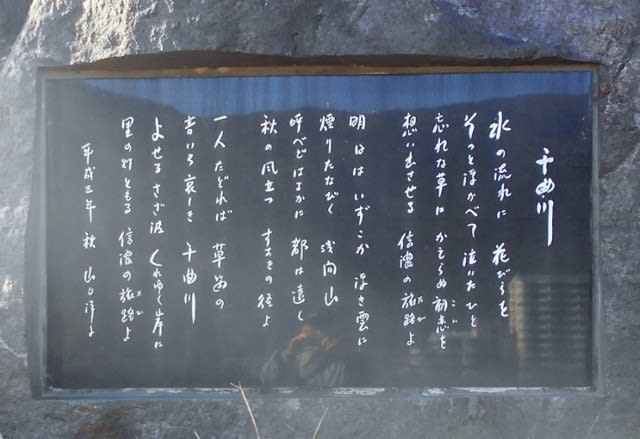 千曲川
水の流れに 花びらを
そっと浮かべて 泣いたひと
忘れな草に かえらぬ初恋を
こい
想い出させる 信濃の旅路よ
たび
明日はいずこか 浮き雲に
煙りたなびく 浅間山
呼べどはるかに 都は遠く
秋の風立つ すすきの径よ
一人たどれば 草笛の
音いろ哀しき 千曲川
よせるさざ波 くれゆく岸に
里の灯ともる 信濃の旅路よ
たび
平成三年 秋 山口洋子